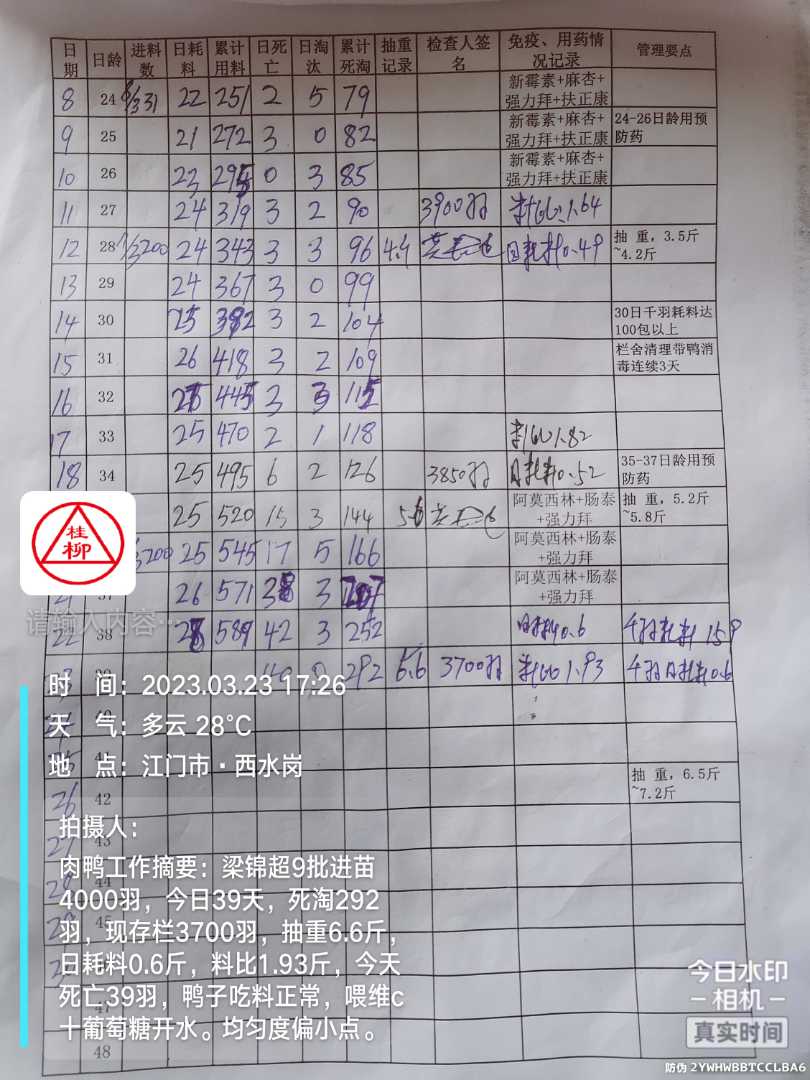 日期 日龄 进料数 日耗料 累计用料 日死亡 日淘汰 累计死淘 抽重记录 检查人签名 免疫、用药情况记录 管理要点
8 24 8/3 31 22 251 2 5 79 新霉素+麻杏+强力拜+扶正康
9 25 21 272 3 0 82 新霉素+麻杏+强力拜+扶正康 24-26日龄用预防药
10 26 23 295 0 3 85 新霉素+麻杏+强力拜+扶正康
11 27 24 319 3 2 90 3900羽 料比1.64
12 28 200 24 343 3 3 96 4.4 日耗料0.49 抽 重，3.5斤~4.2斤
13 29 24 367 3 0 99
14 30 25 392 3 2 104 30日千羽耗料达100包以上
15 31 26 418 3 2 109 栏舍清理带鸭消毒连续3天
16 32 27 445 3 3 115
17 33 25 470 2 1 118 料比1.82
18 34 25 495 6 2 126 3850羽 日耗料0.52 35-37日龄用预防药
25 520 15 3 144 5.6 阿莫西林+肠泰+强力拜 抽 重，5.2斤~5.8斤
200 25 545 17 5 166 阿莫西林+肠泰+强力拜
37 26 571 38 3 207 阿莫西林+肠泰+强力拜
22 38 589 42 3 252 日耗料0.6 千羽耗料159
39 40 0 292 6.6 3700羽 料比1.93 千羽日耗料0.6
40
41
26 42 抽 重，6.5斤~7.2斤
27 43
28 44
45
47
48
桂柳
请输入内容…
时 间：2023.03.23 17:26
天 气：多云 28℃
地 点：江门市·西水岗
拍摄人：
肉鸭工作摘要：梁锦超9批进苗
4000羽，今日39天，死淘292
羽，现存栏3700羽，抽重6.6斤，
日耗料0.6斤，料比1.93斤，今天
死亡39羽，鸭子吃料正常，喂维c
十葡萄糖开水。均匀度偏小点。
今日水印
相机
真实时间
防伪 2YWHWBBTCCLBA6